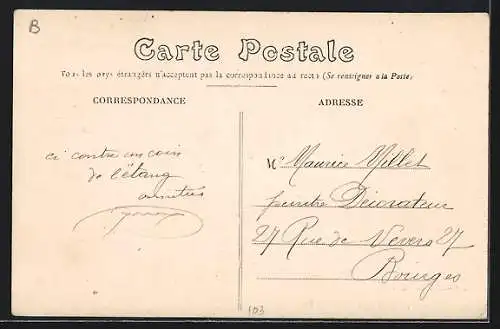 B
Carte Postale
Tous les pays étrangers n'acceptent pas la correspondance au recto (Se renseigner à la Poste)
CORRESPONDANCE
ADRESSE
ci contre un coin
de l'étang
amitiés
Mr Maurice Millet
peintre Décorateur
27 Rue de Nevers 27
Bourges
103